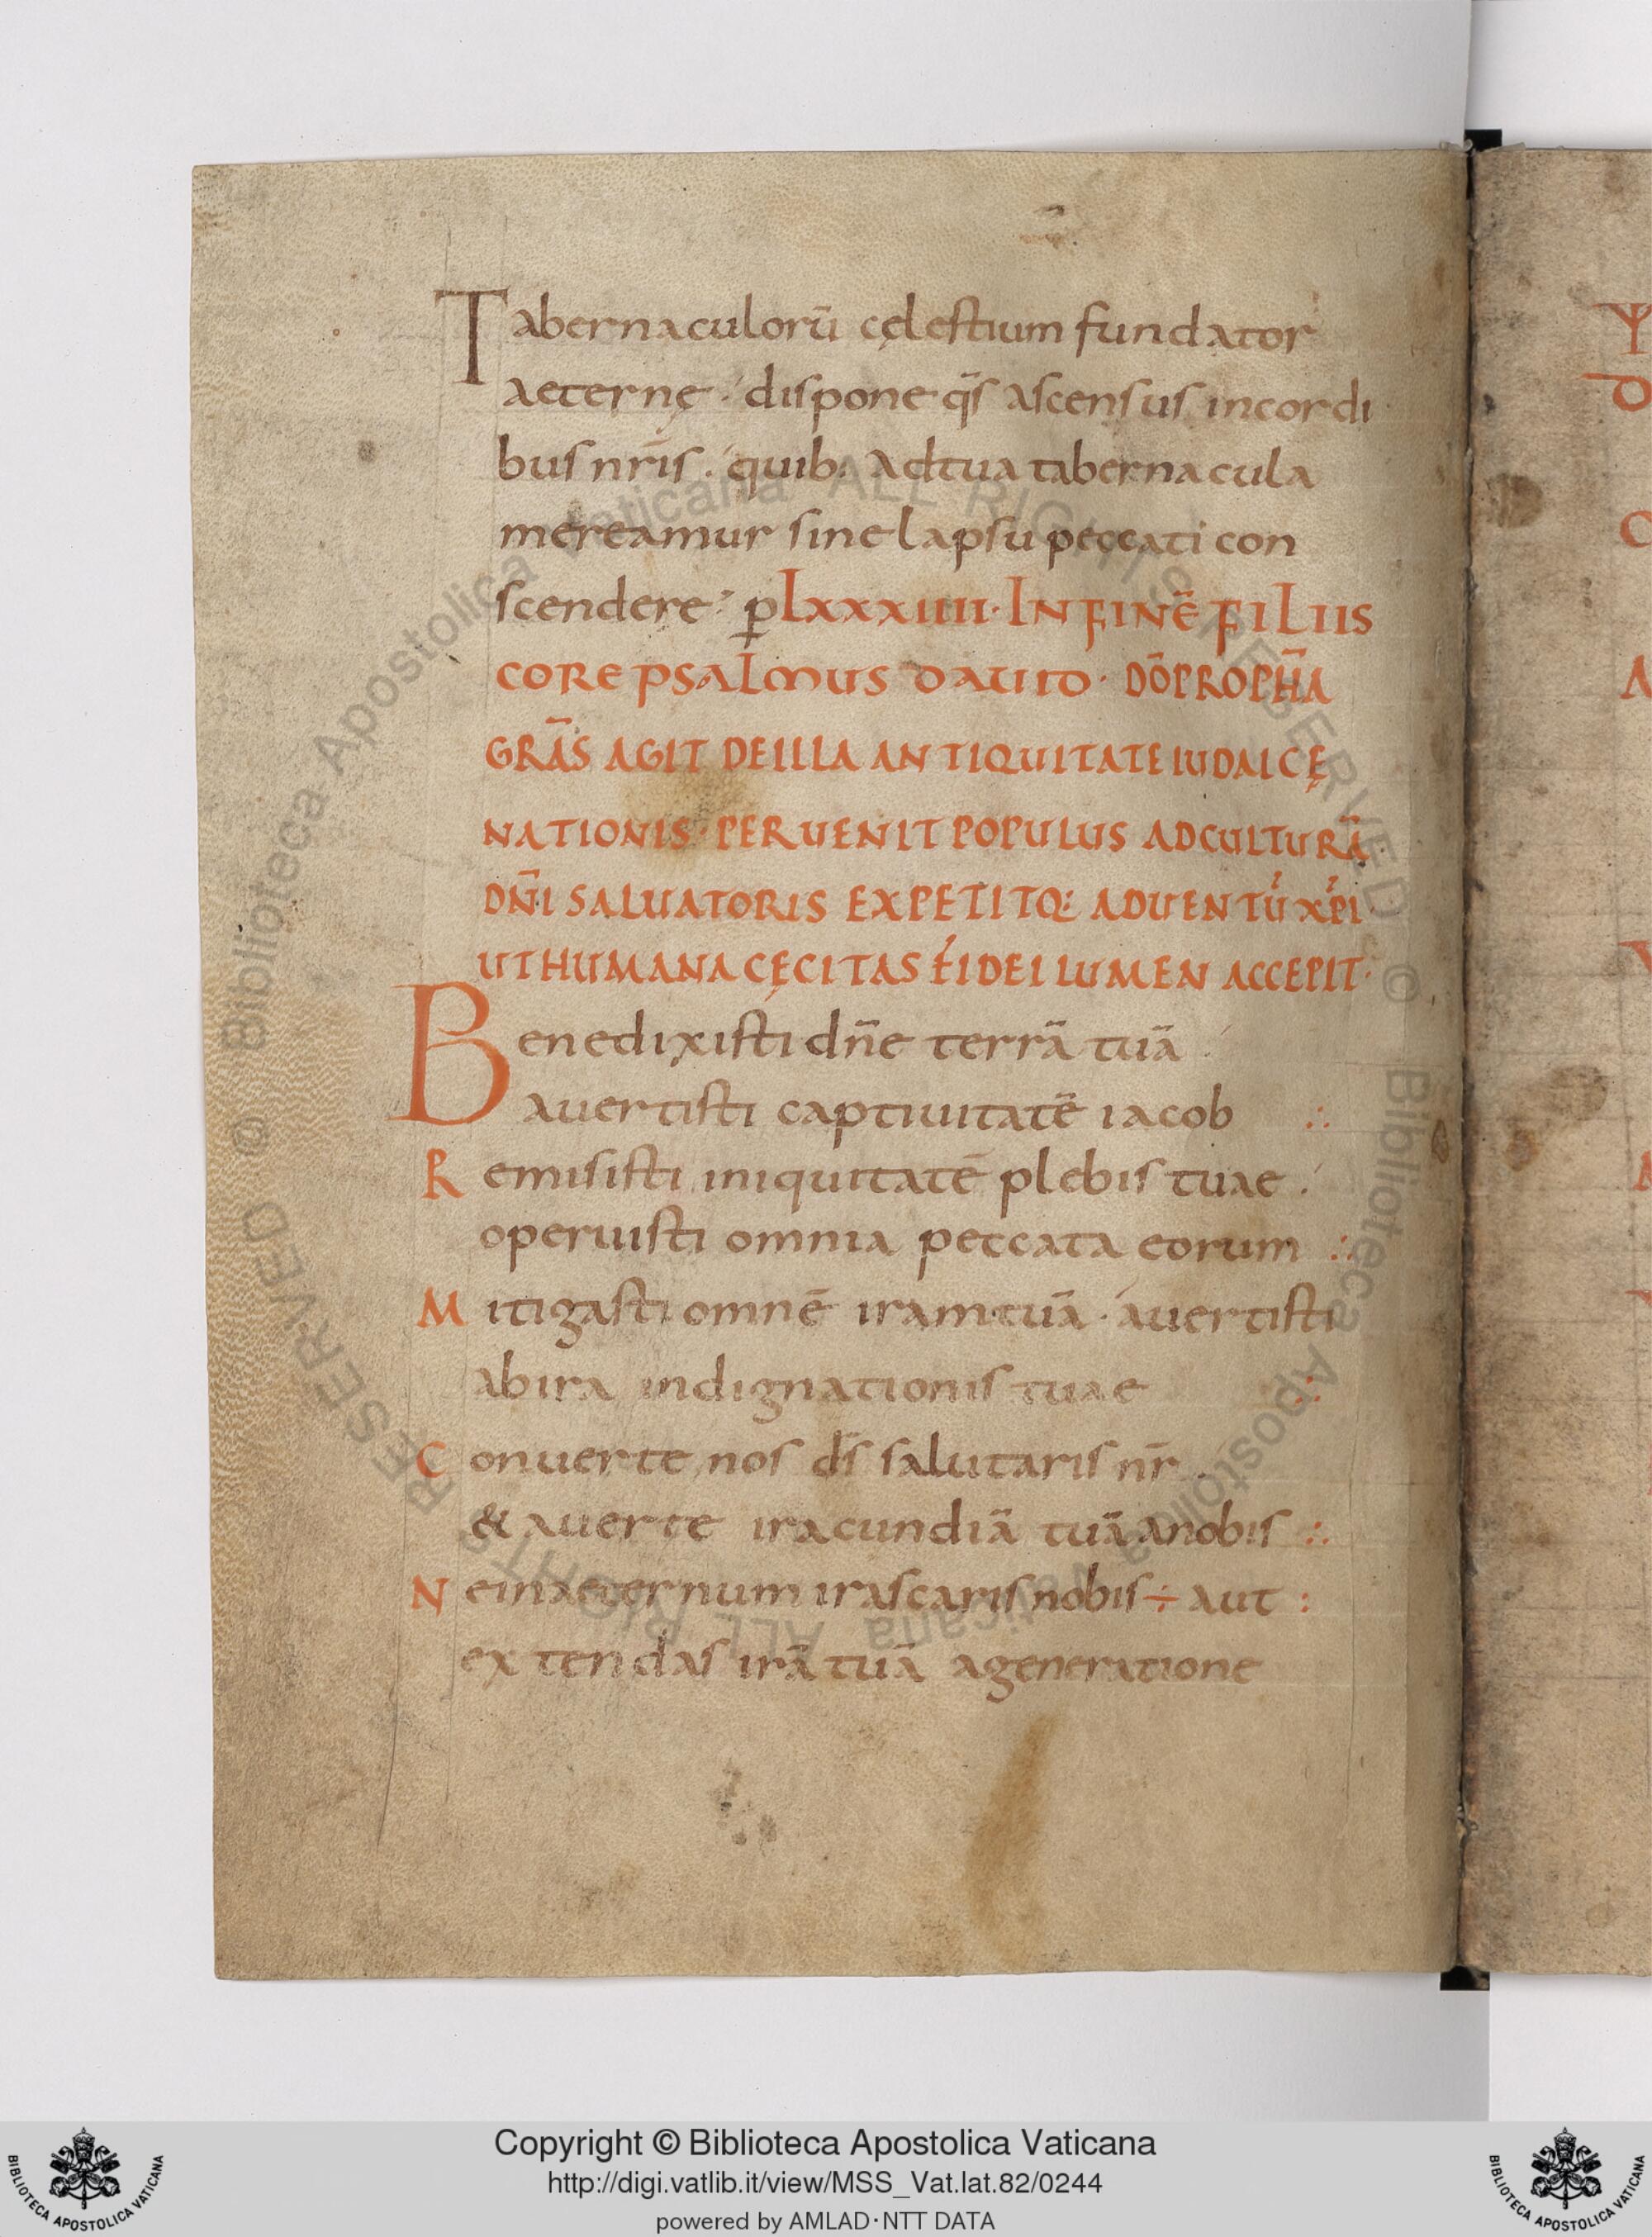 Tabernaculorū cęlestium fundator
aeternę · dispone q̄s ascensus incordi
bus nr̄is · quib: adtua tabernacula
mereamur sine lapsu peccati con
scendere· p̱ LXXXIIII · IN FINĒ FILIIS
CORE PSALMUS DAUID · DŌ PROPH̄A
GRĀS AGIT DEILLA ANTIQUITATE IUDAICĘ
NATIONIS · PERUENIT POPULUS ADCULTURĀ
DN̄I SALUATORIS EXPETITQ: ADUENTŪ XP̄I ·
UTHUMANA CĘCITAS FIDEI LUMEN ACCEPIT ·
Benedixisti dn̄e terrā tuā ·
auertisti captiuitatē iacob ∴
Remisisti iniquitatē plebis tuae ·
operuisti omnia peccata eorum ∴
Mitigasti omnē iram tuā · auertisti
abira indignationis tuae ∴
Conuerte nos ds̄ salutaris nr̄ ·
& auerte iracundiā tuā anobis ∴
Neinaeternum irascaris nobis ÷ aut :
extendas irā tuā ageneratione
Copyright © Biblioteca Apostolica Vaticana
http://digi.vatlib.it/view/MSS_Vat.lat.82/0244
powered by AMLAD·NTT DATA
BIBLIOTECA APOSTOLICA VATICANA
BIBLIOTECA APOSTOLICA VATICANA